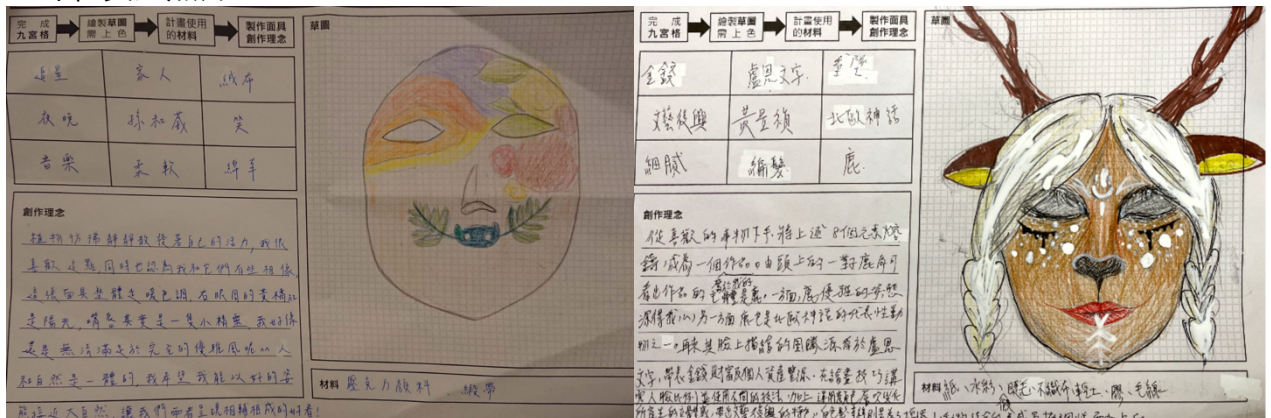 完成九宮格
繪製草圖需上色
計畫使用的材料
製作面具創作理念
草圖
追星 家人 絨布
夜晚 孫和葳 笑
音樂 柔軟 綿羊
創作理念
植物彷彿靜靜散發著自己的活力,我很
喜歡這點,同時也認為我和它們有些相像,
這張面具整體是暖色調,右眼周的黃橘紅
是陽光,嘴唇其實是一隻小精靈,我好像
還是無法滿足於完全的優雅風呢(人
和自然是一體的,我希望我能以好的姿
態迎近大自然,讓我們兩者呈現相輔相成的好看!
材料 壓克力顏料、緞帶
完成九宮格
繪製草圖需上色
計畫使用的材料
製作面具創作理念
草圖
金錢 盧恩文字
文藝復興 黃星禎 北歐神話
細膩 編髮 鹿
創作理念
從喜歡的事物下手,將上述8個元素熔
鑄成為一個作品。由頭上的一對鹿角可
看出作品的主體是鹿,一方面,鹿優雅的姿態
深得我心,另一方面鹿也是北歐神話的代表性動
物之一。再來其臉上描繪的圖騰源於盧恩
文字,帶表金錢財富及個人資產豐源。在繪畫技巧講
材料 紙、水彩、不織布、輕土、膠、毛線